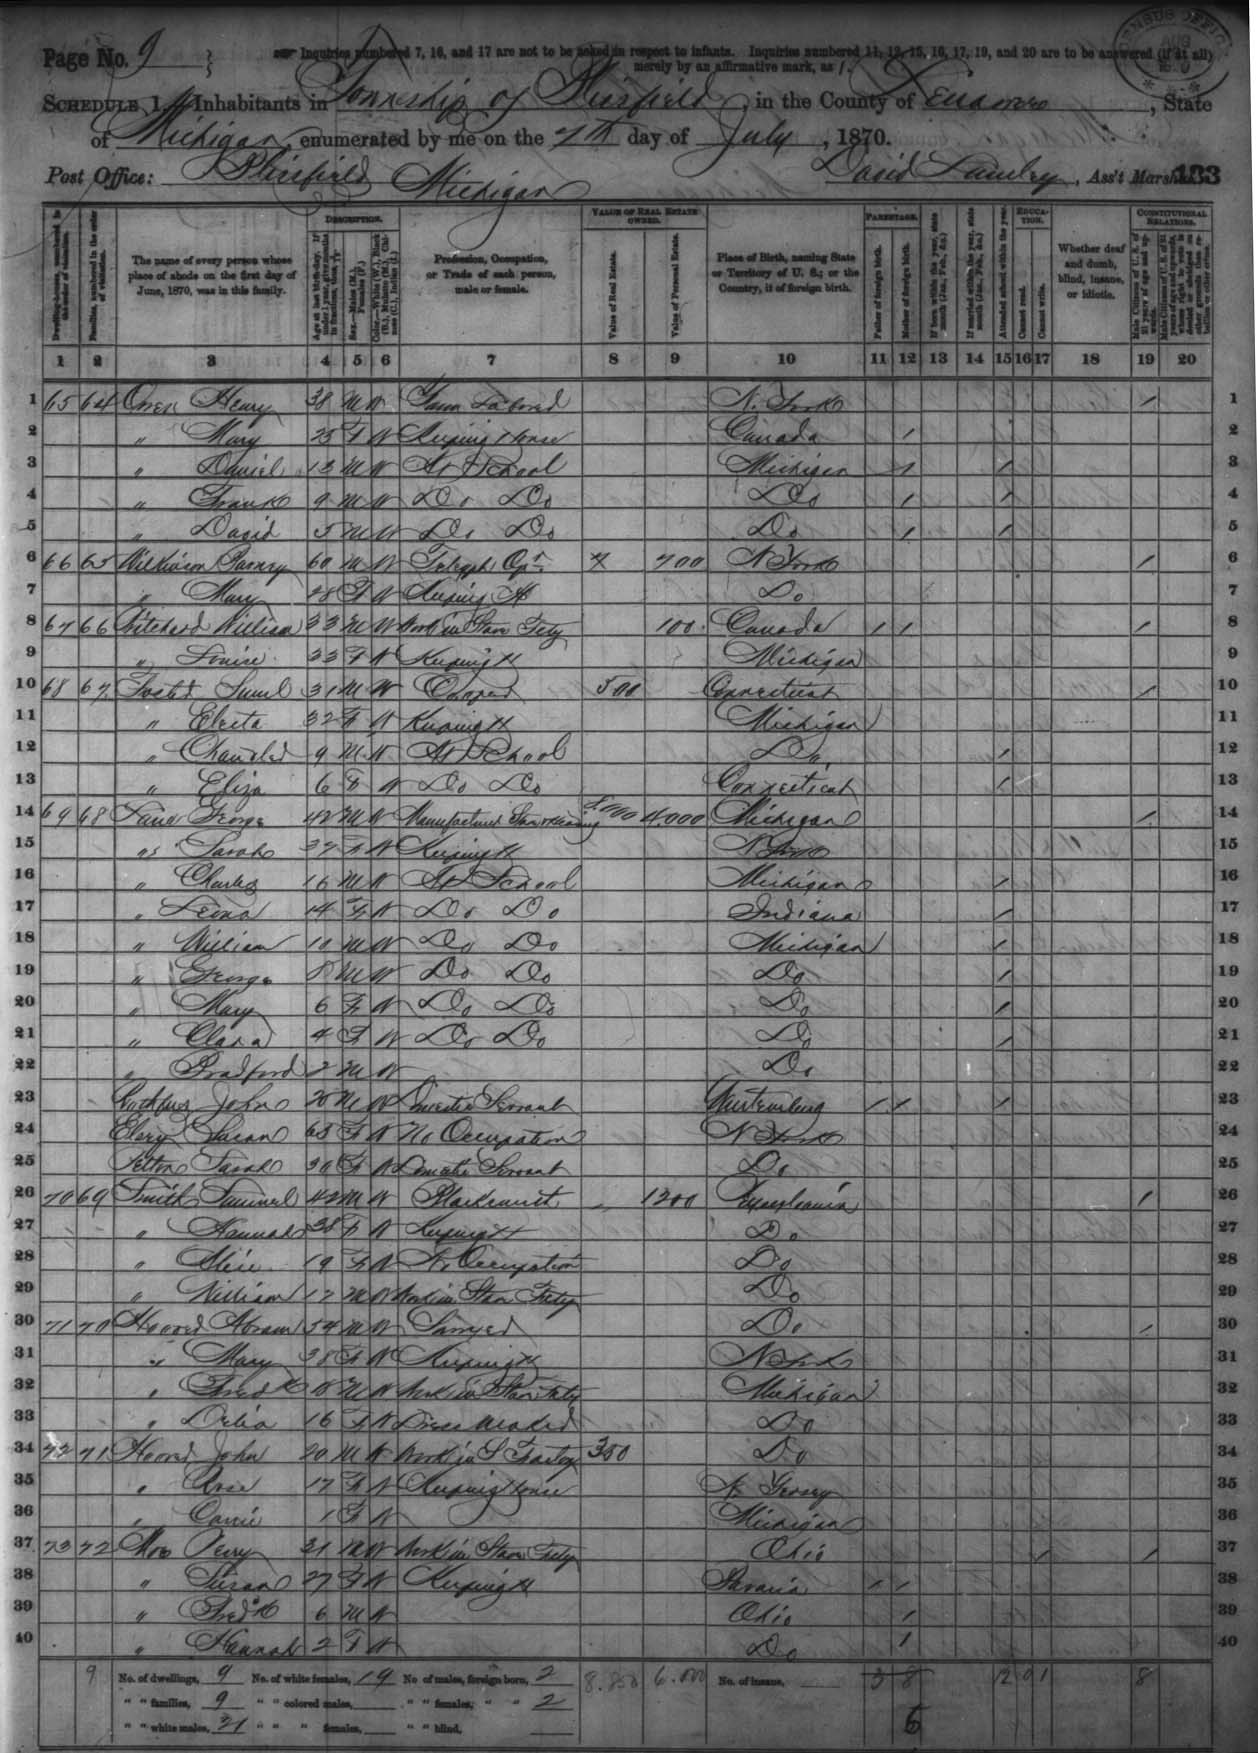 Page No. 9
Inquiries numbered 7, 16, and 17 are not to be asked in respect to infants. Inquiries numbered 11, 12, 15, 16, 17, 19, and 20 are to be answered (if at all) merely by an affirmative mark, as /.
SCHEDULE 1.—Inhabitants in Township of Blissfield, in the County of Lenawee, State
of Michigan, enumerated by me on the 7th day of July, 1870.
Post Office: Blissfield Michigan David Ass't Marshal.
133
DESCRIPTION. VALUE OF REAL ESTATE OWNED. PARENTAGE. EDUCATION. CONSTITUTIONAL RELATIONS.
Dwelling-houses, numbered in the order of visitation.
Families, numbered in the order of visitation.
The name of every person whose place of abode on the first day of June, 1870, was in this family.
Age at last birth-day. If under 1 year, give months in fractions, thus, 3/12
Sex.—Males (M.), Females (F.)
Color.—White (W.), Black (B.), Mulatto (M.), Chinese (C.), Indian (I.)
Profession, Occupation, or Trade of each person, male or female.
Value of Real Estate.
Value of Personal Estate.
Place of Birth, naming State or Territory of U. S.; or the Country, if of foreign birth.
Father of foreign birth.
Mother of foreign birth.
If born within the year, state month (Jan., Feb., &c.)
If married within the year, state month (Jan., Feb., &c.)
Attended school within the year.
Cannot read.
Cannot write.
Whether deaf and dumb, blind, insane, or idiotic.
Male Citizens of U. S. of 21 years of age and upwards.
Male Citizens of U. S. of 21 years of age and upwards, whose right to vote is denied or abridged on other grounds than rebellion or other crime.
1 2 3 4 5 6 7 8 9 10 11 12 13 14 15 16 17 18 19 20
1 65 64 Henry 38 M W Farm Laborer N. York / 1
2 " Mary 25 F W Keeping House Canada / 2
3 " Daniel 13 M W At School Michigan / / 3
4 " Frank 9 M W Do Do Do / / 4
5 " David 5 M W Do Do Do / / 5
6 66 65 Wilkinson 60 M W Telegph Opr 700 N York / 6
7 " Mary 28 F W Keeping H Do 7
8 67 66 Pritchard William 33 M W Work in Stave Fcty 100 Canada / / / 8
9 " Louise 33 F W Keeping H Michigan 9
10 68 67 Foster Saml 31 M W Cooper 500 Connecticut / 10
11 " Electa 32 F W Keeping H Michigan 11
12 " Chandler 9 M W At School Do / 12
13 " Eliza 6 F W Do Do Connecticut / 13
14 69 68 George 42 M W Manufacturer 8,000 4,000 Michigan / 14
15 " Sarah 37 F W Keeping H N York 15
16 " Charles 16 M W At School Michigan / 16
17 " 14 F W Do Do Indiana / 17
18 " William 10 M W Do Do Michigan / 18
19 " George 8 M W Do Do Do / 19
20 " Mary 6 F W Do Do Do / 20
21 " Clara 4 F W Do Do Do / 21
22 " Bradford 2 M W Do 22
23 John 20 M W Domestic Servant Wurtemburg / / / 23
24 Susan 65 F W No Occupation N York 24
25 Sarah 30 F W Domestic Servant Do 25
26 70 69 Smith Samuel 42 M W Blacksmith 1200 Pennsylvania / 26
27 " Hannah 38 F W Keeping H Do 27
28 " Alice 19 F W No Occupation Do 28
29 " William 17 M W Work in Stave Fcty Do 29
30 71 70 Hoover Abram 54 M W Sawyer Do / 30
31 " Mary 38 F W Keeping H N York 31
32 " Fredk 18 M W Work in Stave Fcty Michigan 32
33 " Delia 16 F W Dress Maker Do 33
34 72 71 Hoover John 20 M W Work in S Factory 350 Do 34
35 " Rose 17 F W Keeping House N Jersey 35
36 " Carrie 1 F W Michigan 36
37 73 72 Perry 31 M W Work in Stave Fcty Ohio / / 37
38 " Susan 27 F W Keeping H Bavaria / / 38
39 " Fredk 6 M W Ohio / 39
40 " Hannah 2 F W Do / 40
9 No. of dwellings, 9 No. of white females, 19 No of males, foreign born, 2 8.850 6.000 No. of insane, 3 8 12 0 1 8
" " families, 9 " " colored males, " " females, " " 2
" " white males, 21 " " " females, " " blind, 6